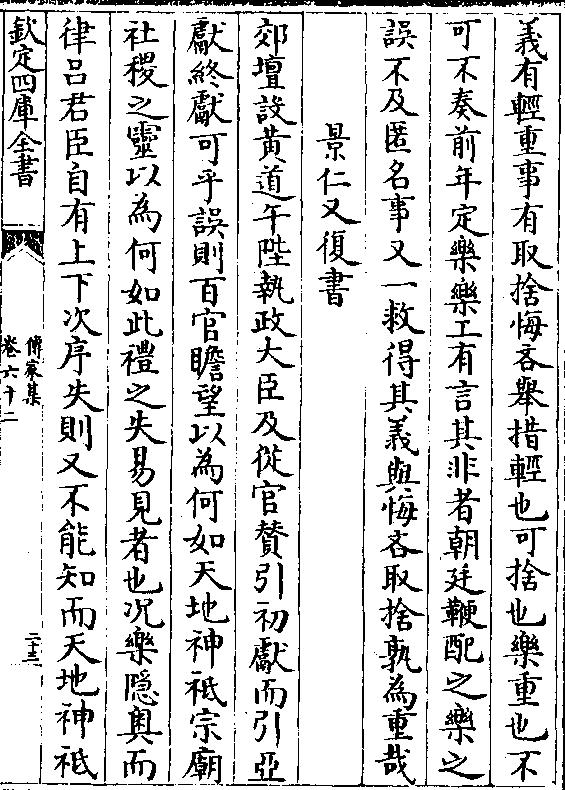 義有輕重事有取捨悔吝舉措輕也可捨也樂重也不
可不奏前年定樂樂工有言其非者朝廷鞭配之樂之
誤不及匿名事又一救得其義與悔吝取捨孰為重哉
景仁又復書
郊壇設黃道午陛執政大臣及從官贊引初獻而引亞
獻終獻可乎誤則百官瞻望以為何如天地神祗宗廟
社稷之靈以為何如此禮之失易見者也况樂隱奥而
律吕君臣自有上下次序失則又不能知而天地神祗
欽定四庫全書
傳家集
卷六十二
二十三